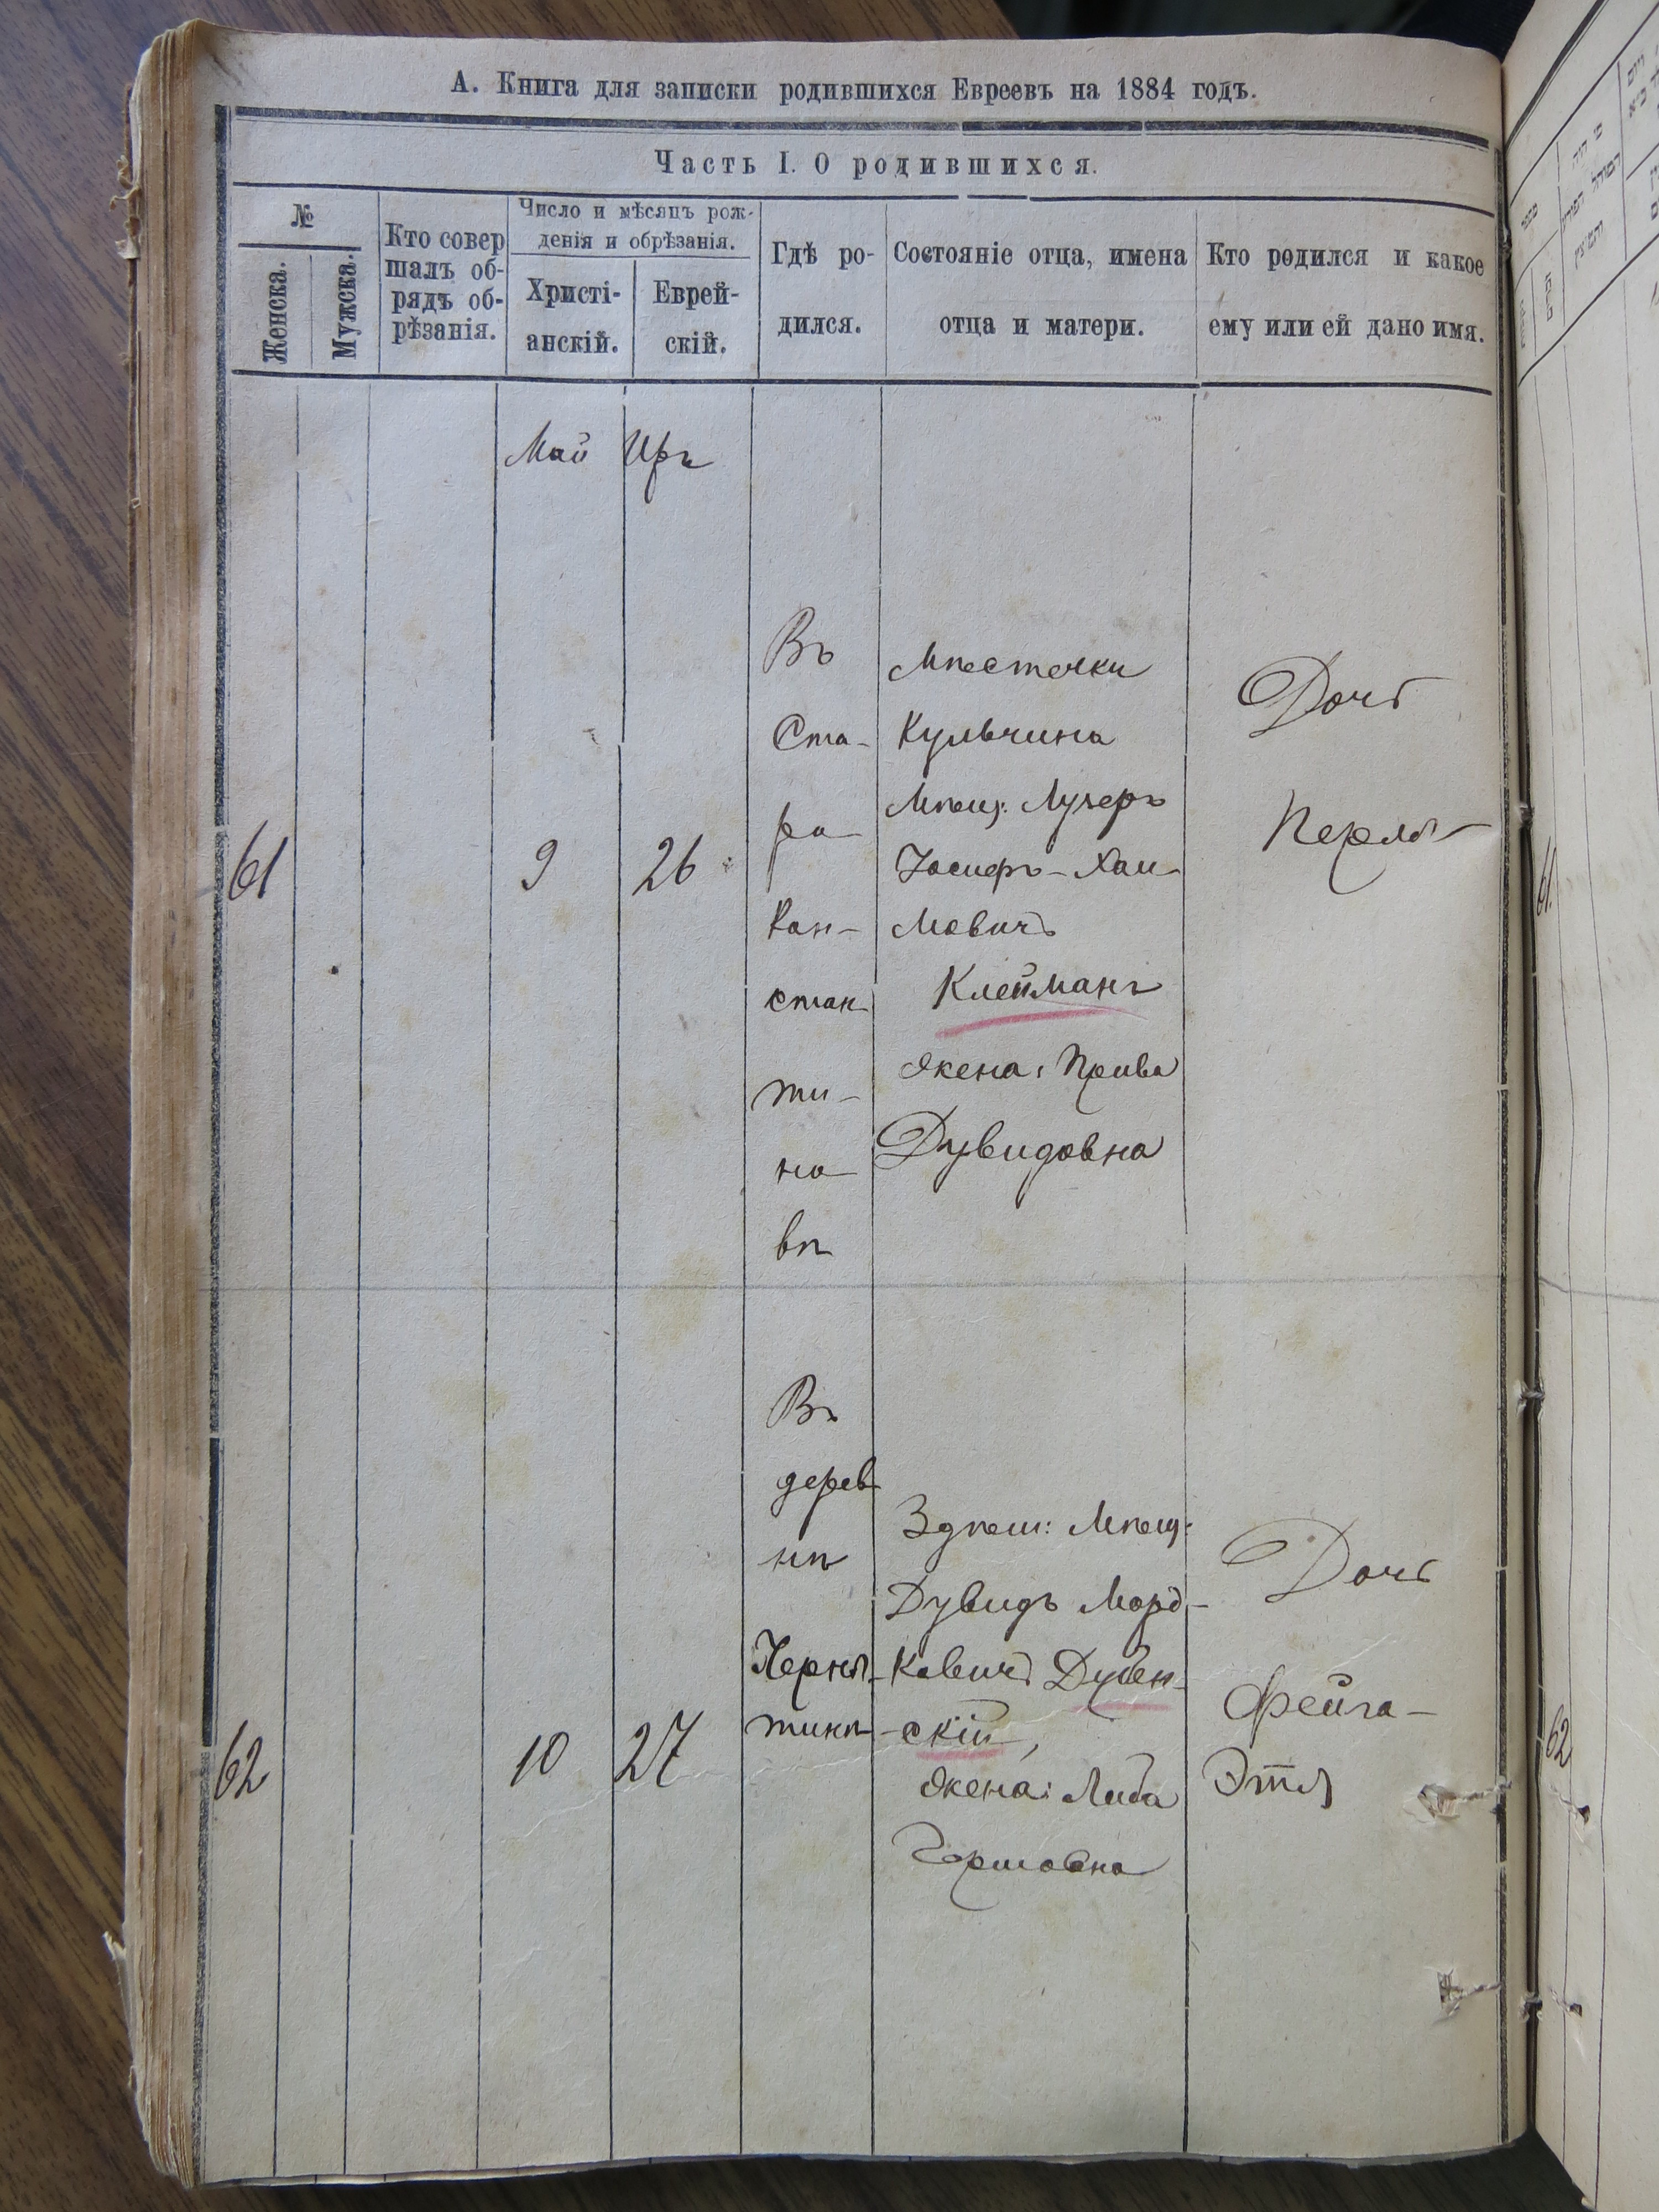 А. Книга для записки родившихся Евреевъ на 1884 годъ.
Часть I. О родившихся.
№
Женска.
Мужска.
Кто совер
шалъ об-
рядъ об-
рѣзанія.
Число и мѣсяцъ рож-
денія и обрѣзанія.
Христі-
анскій.
Еврей-
скій.
Гдѣ ро-
дился.
Состояніе отца, имена
отца и матери.
Кто родился и какое
ему или ей дано имя.
Май
Иръ
61
9
26
Въ
Ста-
ра-
Кон-
стан
ти-
но-
вѣ
Мѣстечки
Кульчина
Мѣщ: Лузеръ
Іосифъ-Хаи-
мовичъ
Клейманъ
Жена: Прива
Дувидовна
Дочь
Перлъ-
61.
62
10
27
Въ
дерев
нѣ
Черня-
тинѣ
Здѣш: Мѣщ:
Дувидъ Морд-
ковичъ Дубен-
-скій,
Жена: Либа
Гершовна
Дочь
Фейга-
Этля
62